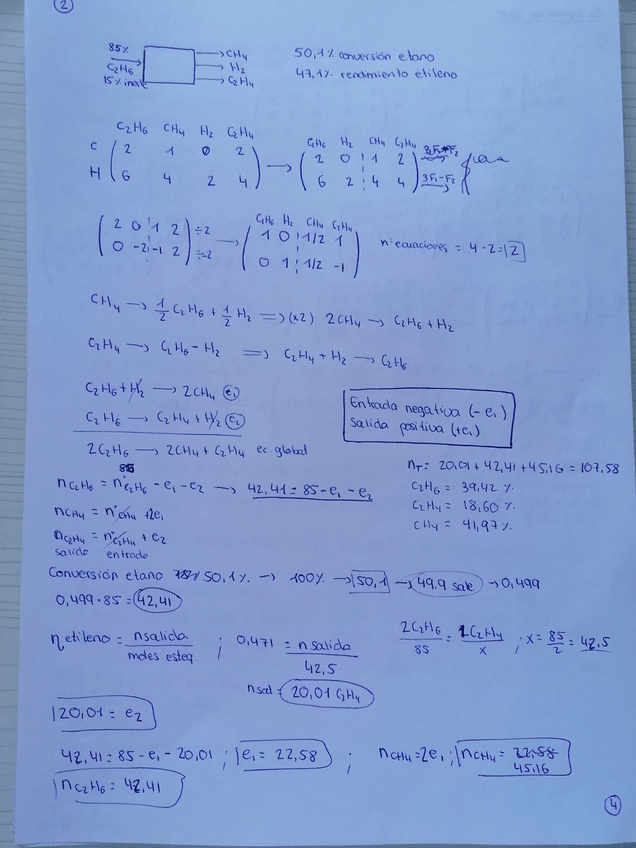 2
85% → CH4
C2H6 → H2
15% inerte → C2H4
50,1% conversión etano
47,1% rendimiento etileno
C2H6 CH4 H2 C2H4 C2H6 H2 CH4 C2H4
C ( 2 1 0 2 ) → ( 2 0 1 2 ) 3F1-F2
H ( 6 4 2 4 ) ( 6 2 4 4 ) 3F1-F2
C2H6 H2 CH4 C2H4
( 2 0 1 2 ) ÷2 → ( 1 0 1/2 1 )
( 0 -2 -1 2 ) ÷-2 ( 0 1 1/2 -1 )
nº ecuaciones = 4-2=2
CH4 → 1/2 C2H6 + 1/2 H2 ⇒ (x2) 2CH4 → C2H6 + H2
C2H4 → C2H6 - H2 ⇒ C2H4 + H2 → C2H6
C2H6 + H2 → 2CH4 e1
C2H6 → C2H4 + H2 e2
2C2H6 → 2CH4 + C2H4 ec. global
Entrada negativa (-e1)
Salida positiva (+e1)
85
nC2H6 = n°C2H6 - e1 - e2 → 42,41 = 85 - e1 - e2
nCH4 = n°CH4 + 2e1
nC2H4 = n°C2H4 + e2
salida entrada
nT = 20,01 + 42,41 + 45,16 = 107,58
C2H6 = 39,42 %
C2H4 = 18,60 %
CH4 = 41,97 %
Conversión etano 50,1% → 100% → 50,1 → 49,9 sale → 0,499
0,499·85 = 42,41
η etileno = nsalida / moles esteq ; 0,471 = nsalida / 42,5
2C2H6 / 85 = 1C2H4 / x ; x = 85/2 = 42,5
nsal = 20,01 C2H4
20,01 = e2
42,41 = 85 - e1 - 20,01 ; e1 = 22,58 ; nCH4 = 2e1 ; nCH4 = 22,58
45,16
nC2H6 = 42,41
4